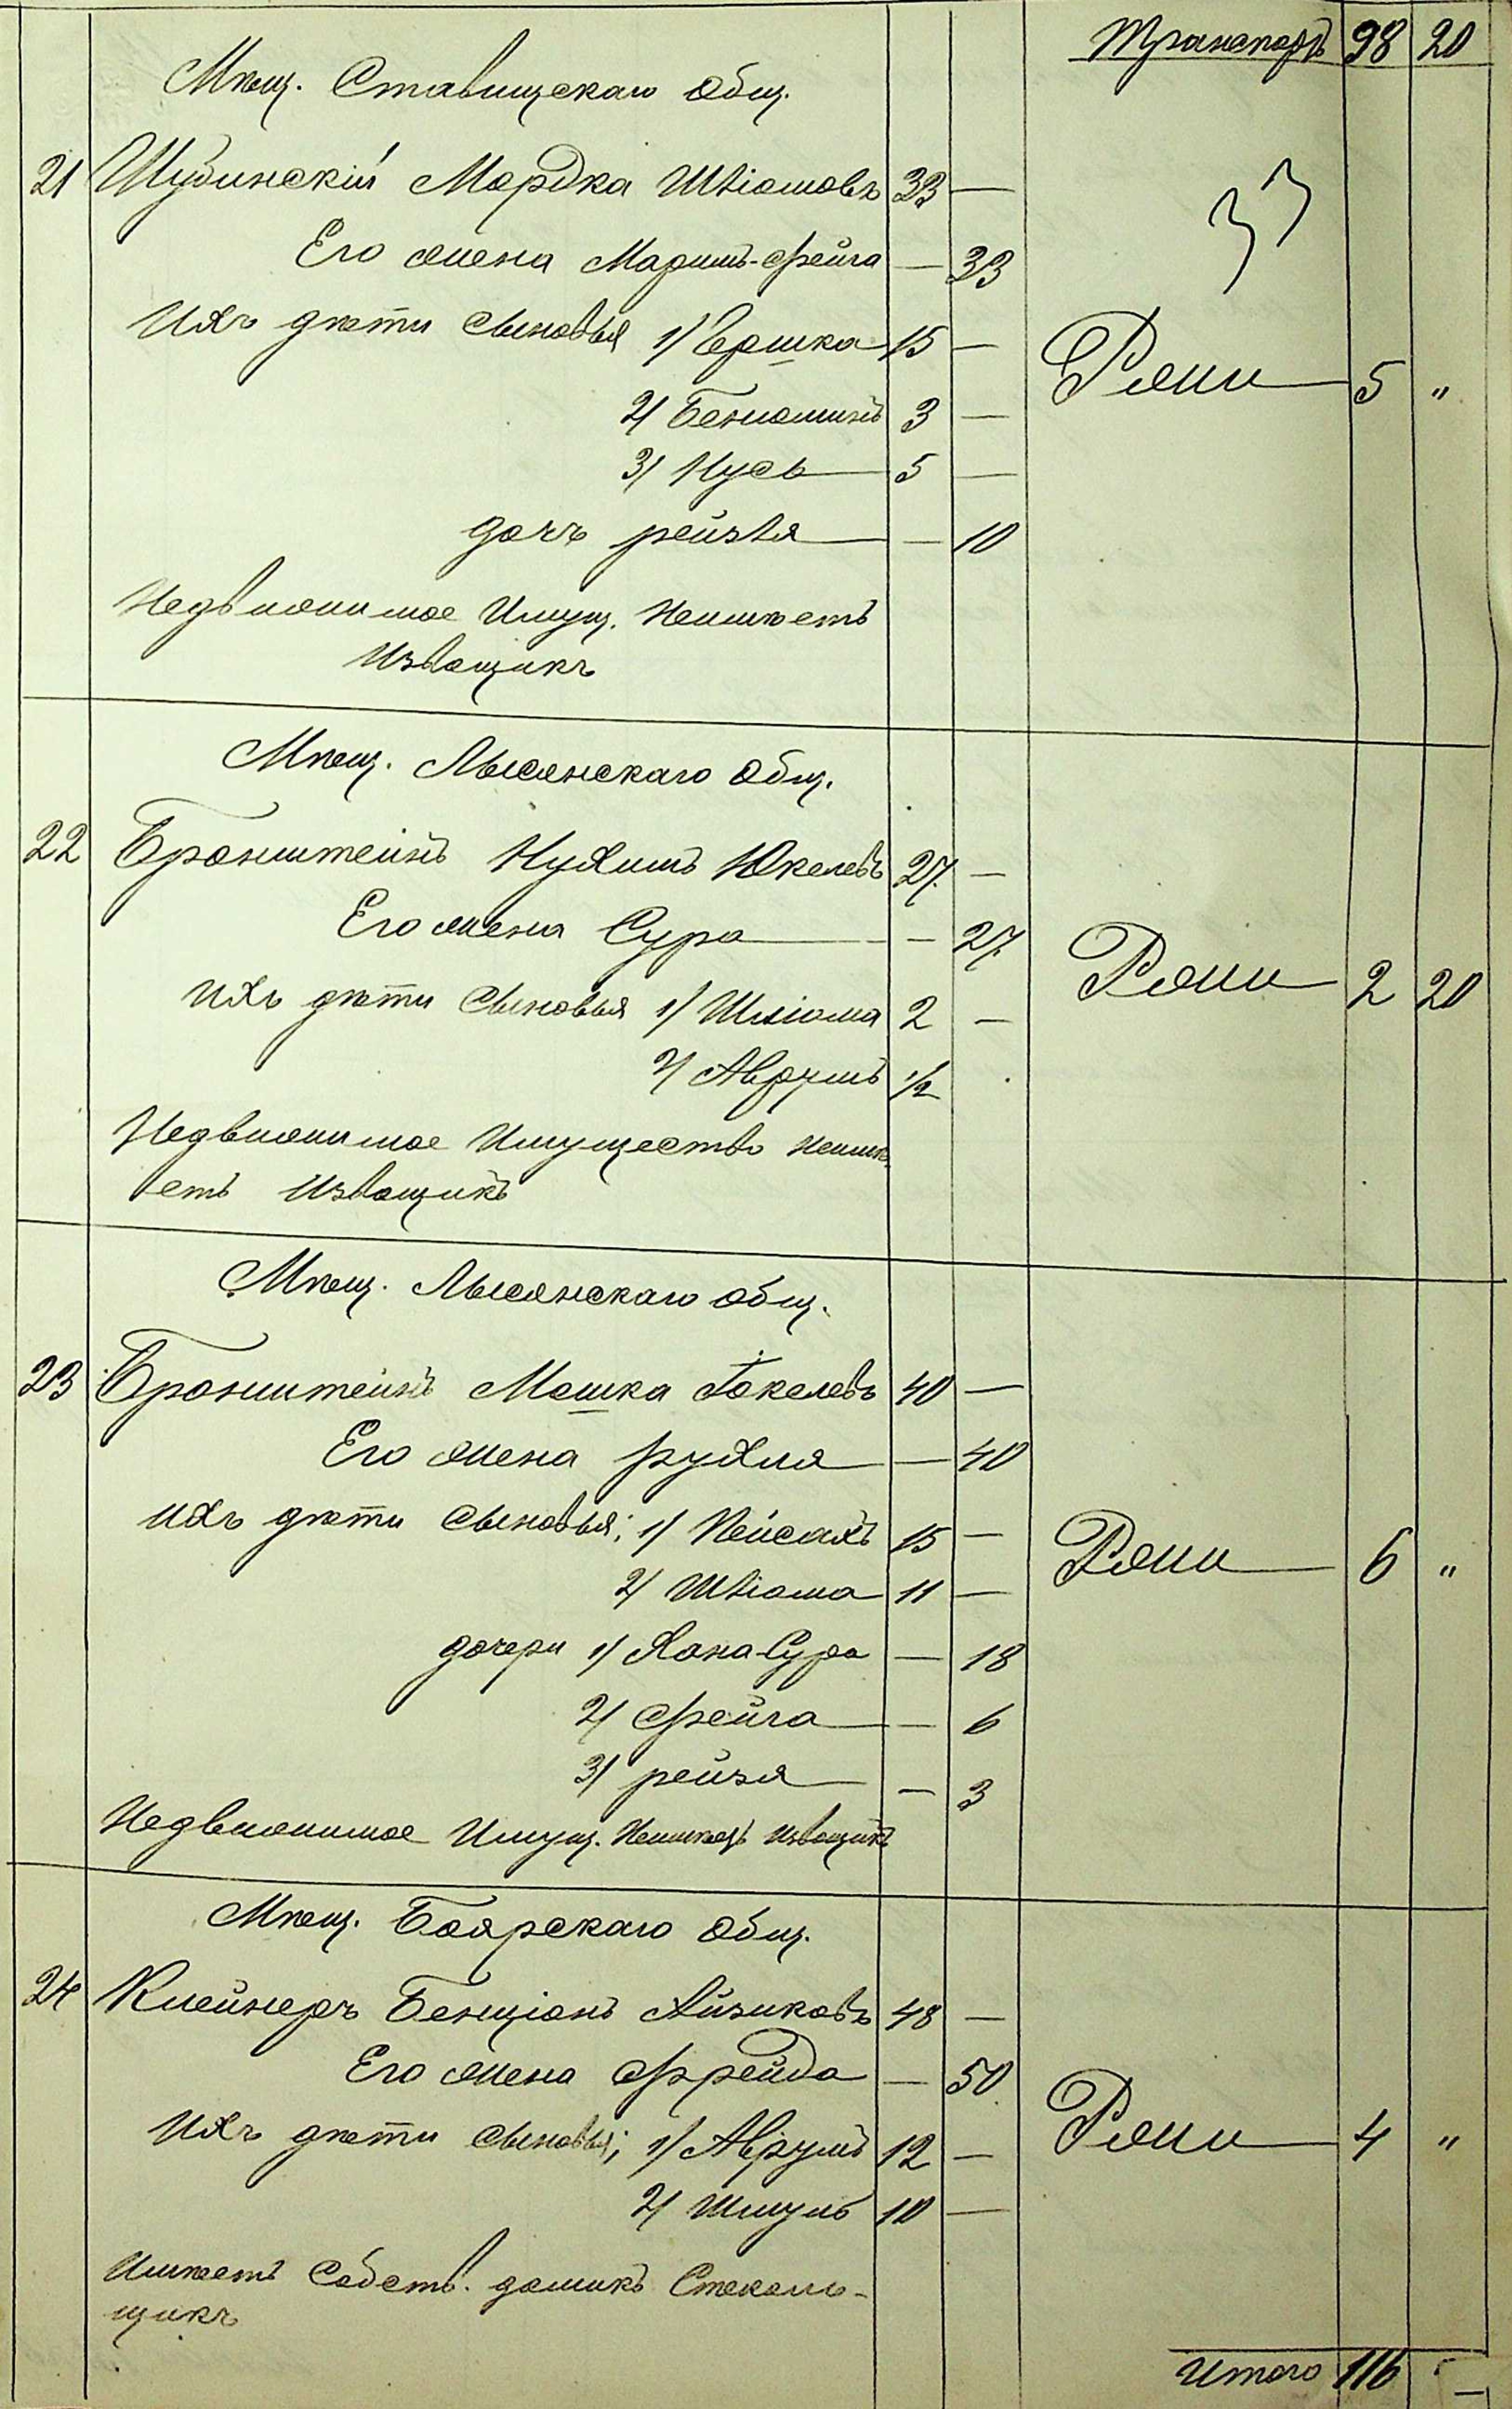 Транспортъ 98 20
Мѣщ. Ставищскаго Общ.
21 Шубинскій Мордка Шліомовъ 33 —
Его жена Маримъ-Фейга — 33
33
Ихъ дѣти сыновья 1/ Ершка 15 —
Ржи 5 "
2/ Беніоминъ 3 —
3/ Нусь 5 —
дочь рейзля — 10
Недвижимое Имущ. Неимѣетъ
Извощикъ
Мѣщ. Лысянскаго Общ.
22 Бронштейнъ Нухимъ Юкелевъ 27 —
Его жена Сура — 27
Ржи 2 20
Ихъ дѣти сыновья 1/ Шліома 2 —
2/ Аврумъ 1/2
Недвижимое Имущество неимѣ
етъ Извощикъ
Мѣщ. Лысянскаго общ.
23 Бронштейнъ Мошка Іокелевъ 40 —
Его жена рухля — 40
ихъ дѣти сыновья; 1/ Пейсахъ 15 —
Ржи 6 "
2/ Шліома 11 —
дочери 1/ Хана-Сура — 18
2/ Фейга — 6
3/ рейзя — 3
Недвижимое Имущ. Неимѣетъ Извощикъ
Мѣщ. Боярскаго Общ.
24 Клейнеръ Бенціонъ Айзиковъ 48 —
Его жена Фрейда — 50
Ихъ дѣти сыновья; 1/ Аврумъ 12 —
Ржи 4 "
2/ Шмуль 10 —
Имѣетъ Собств. домикъ Стеколь-
щикъ
Итого 116 —